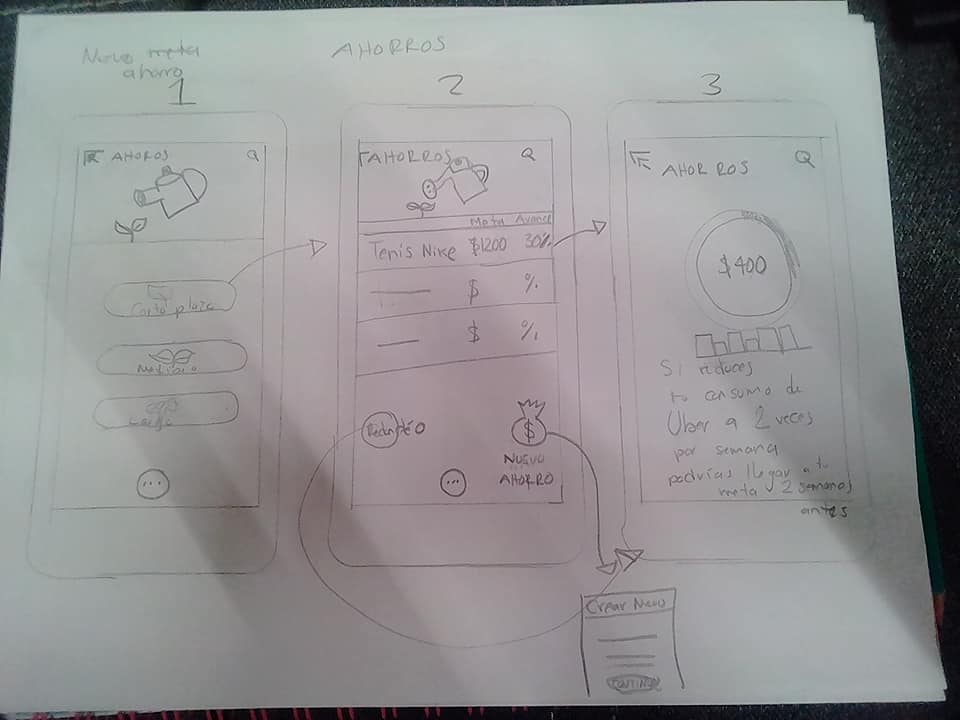 Nuevo meta
ahorro
1
AHOROS
Corto plazo
Mediano
Largo
AHORROS
2
AHORROS
Meta Avance
Tenis Nike $1200 30%
$ %
$ %
$
NUEVO
AHORRO
3
AHORROS
$400
Si reduces
tu consumo de
Uber a 2 veces
por semana
podrías llegar a tu
meta 2 semanas
antes
Crear Nuevo